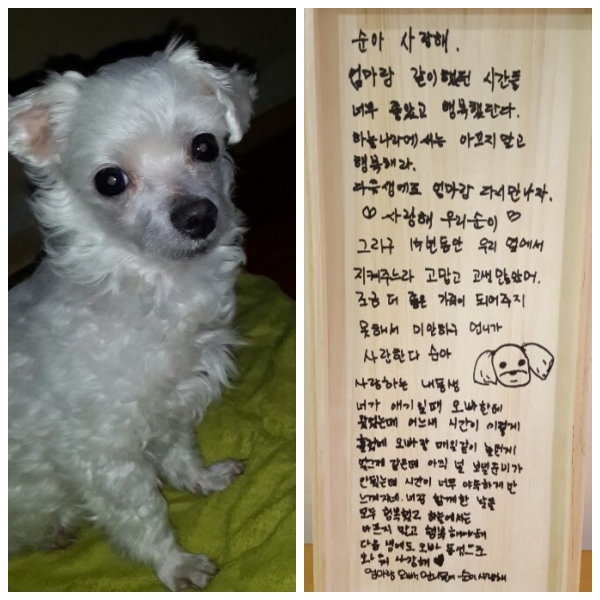 순아 사랑해.
엄마랑 같이했던 시간들
너무 좋았고 행복했단다.
하늘나라에서는 아프지말고
행복해라.
다음생에도 엄마랑 다시만나자.
♡ 사랑해 우리순이 ♡
그리구 14년동안 우리 옆에서
지켜주느라 고맙고 고생많았어.
조금 더 좋은 가족이 되어주지
못해서 미안하구 언니가
사랑한다 순아
사랑하는 내동생
너가 애기일때 오빠한테
왔었는데 어느새 시간이 이렇게
흘렀네 오빠랑
같은데 아직 널 보낼준비가
안됐는데 시간이 너무 야속하게만
느껴지네. 너랑 함께한 날들
모두 행복했고 하늘에서는
아프지 말고 행복해야해
다음 생에도 오빠 동생으로
와줘 사랑해 ♥
엄마랑 오빠랑 언니가 순이사랑해